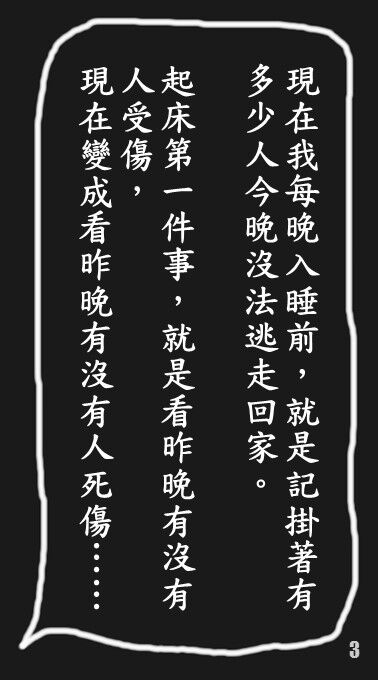 現在我每晚入睡前，就是記掛著有
多少人今晚沒法逃走回家。
起床第一件事，就是看昨晚有沒有
人受傷，
現在變成看昨晚有沒有人死傷……
3